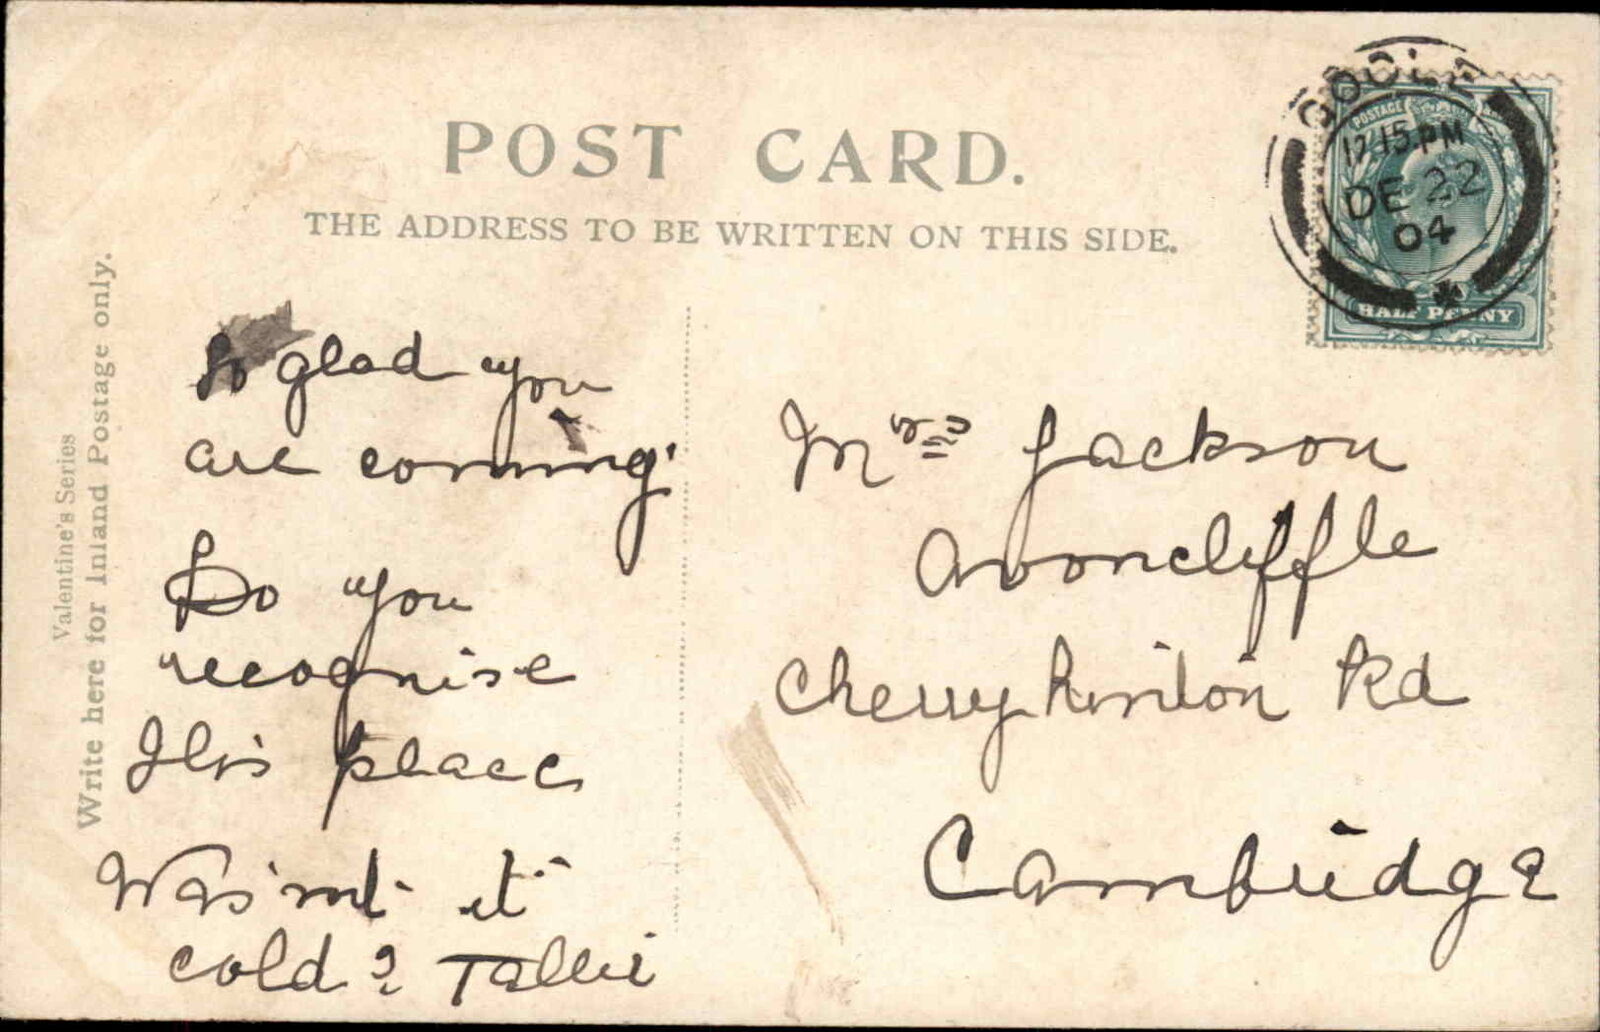 POST CARD.
THE ADDRESS TO BE WRITTEN ON THIS SIDE.
Valentine's Series
Write here for Inland Postage only.
GOOLE
12.15.PM
DE 22
04
POSTAGE
HALF PENNY
So glad you
are coming.
Do you
recognise
this place
Was'nt it
cold?
Mrs Jackson
Avoncliffe
Cherryhinton Rd
Cambridge